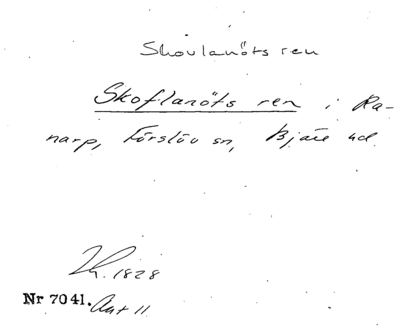 Skovlanöts ren
Skoflanöts ren i Ra-
narp, Förslöv sn, Bjäre hd.
1828
Nr 7041. Akt 11